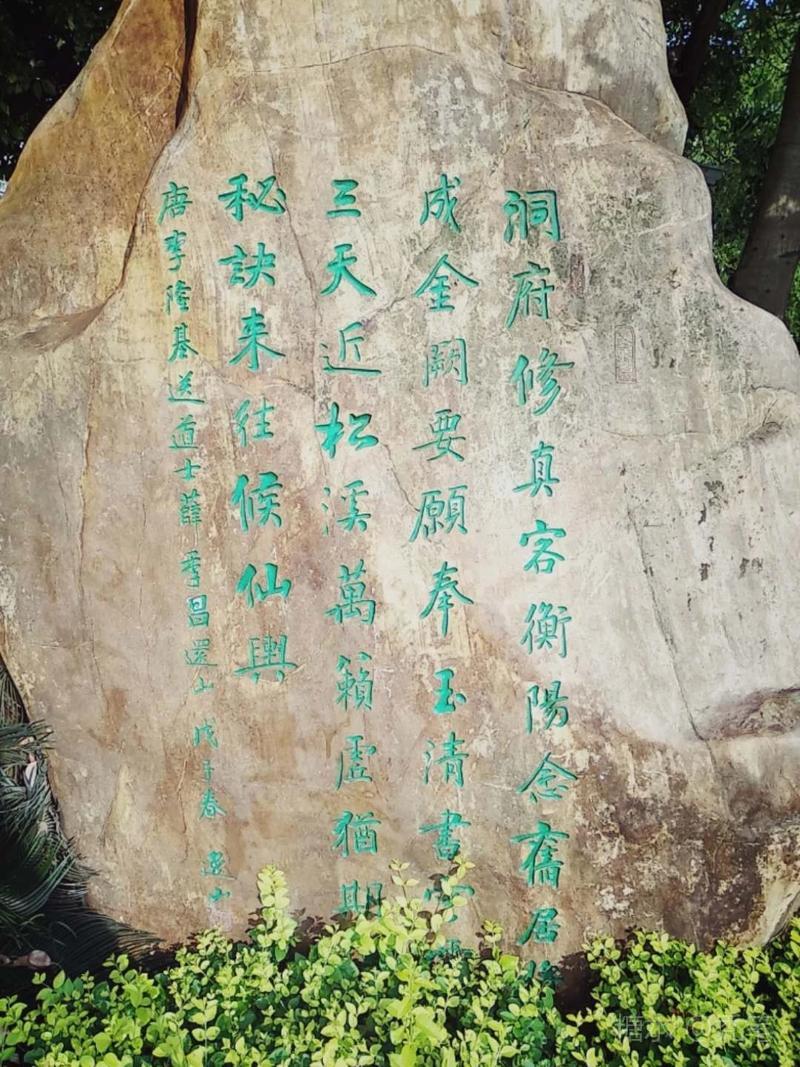 洞府修真客衡陽念舊居
成金闕要願奉玉清書雲
三天近松溪萬籟虛猶期
秘訣来往候仙輿
唐李隆基送道士薛季昌還山 戊子春